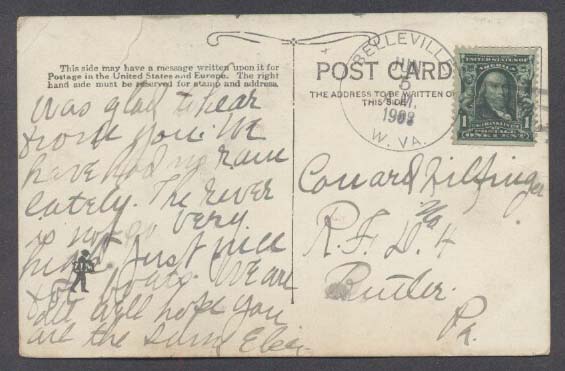 This side may have a message written upon it for
Postage in the United States and Europe. The right
hand side must be reserved for stamp and address.
POST CARD
THE ADDRESS TO BE WRITTEN ON
THIS SIDE
BELLEVILLE
JUN
8
M.
W. VA.
UNITED STATES OF AMERICA
1 1
FRANKLIN
POSTAGE
ONE CENT
Was glad to hear
from you. We
have had no rain
lately. The river
is not go very
high just nice
for boats. We are
all well hope you
are the same
R. F. D. No 4
Butler.
Pa.